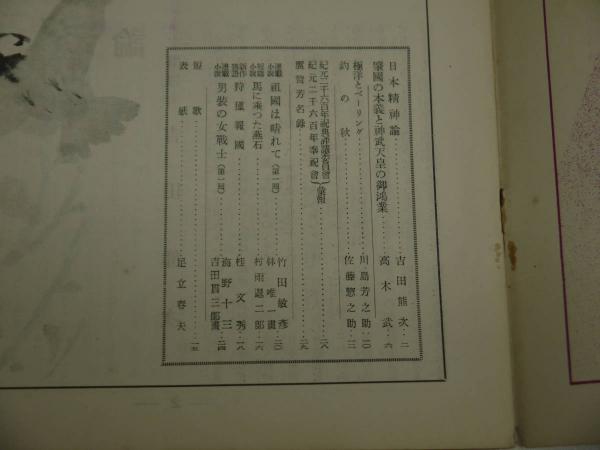 日本精神論……吉田熊次…二
肇國の本義と神武天皇の御鴻業……高木武…六
極洋とベーリング……川島芳之助…一〇
釣の秋……佐藤惣之助…一三
紀元二千六百年祝典評議委員會
紀元二千六百年奉祝會
彙報……一八
賛芳名錄……一九
連載小說 祖國は晴れて(第一回)……竹田敏彥
林唯一畫…二〇
短篇小說 馬に乘つた燕石……村雨退二郎…一六
新作落語 狩獵報國……桂文秀…一八
連載小說 男裝の女戰士(第一回)……海野十三
吉田貫三郎畫…二四
短歌……一五
表紙……足立春天
論